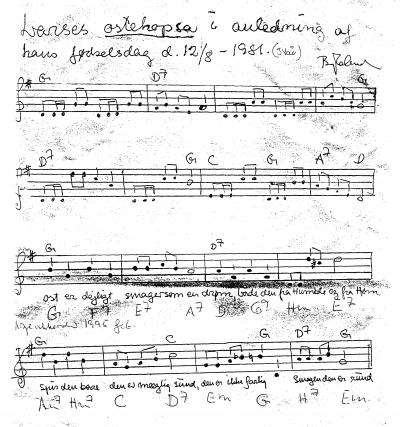 Larses ostehopsa i anledning af
hans fødselsdag d. 12/8 - 1981. (3 kår)
G D7 G
D7 G C G A7 D
G D7
ost er dejligt smager som en drøm, både den fra Humble og fra Hjem
G F7 E7 A7 D G7 Hm E7
1996
G C G D7 G
spis den bare den er mægtig sund, den er ikke farlig smagen den er rund
Am7 Hm7 C D7 Em G H7 Em